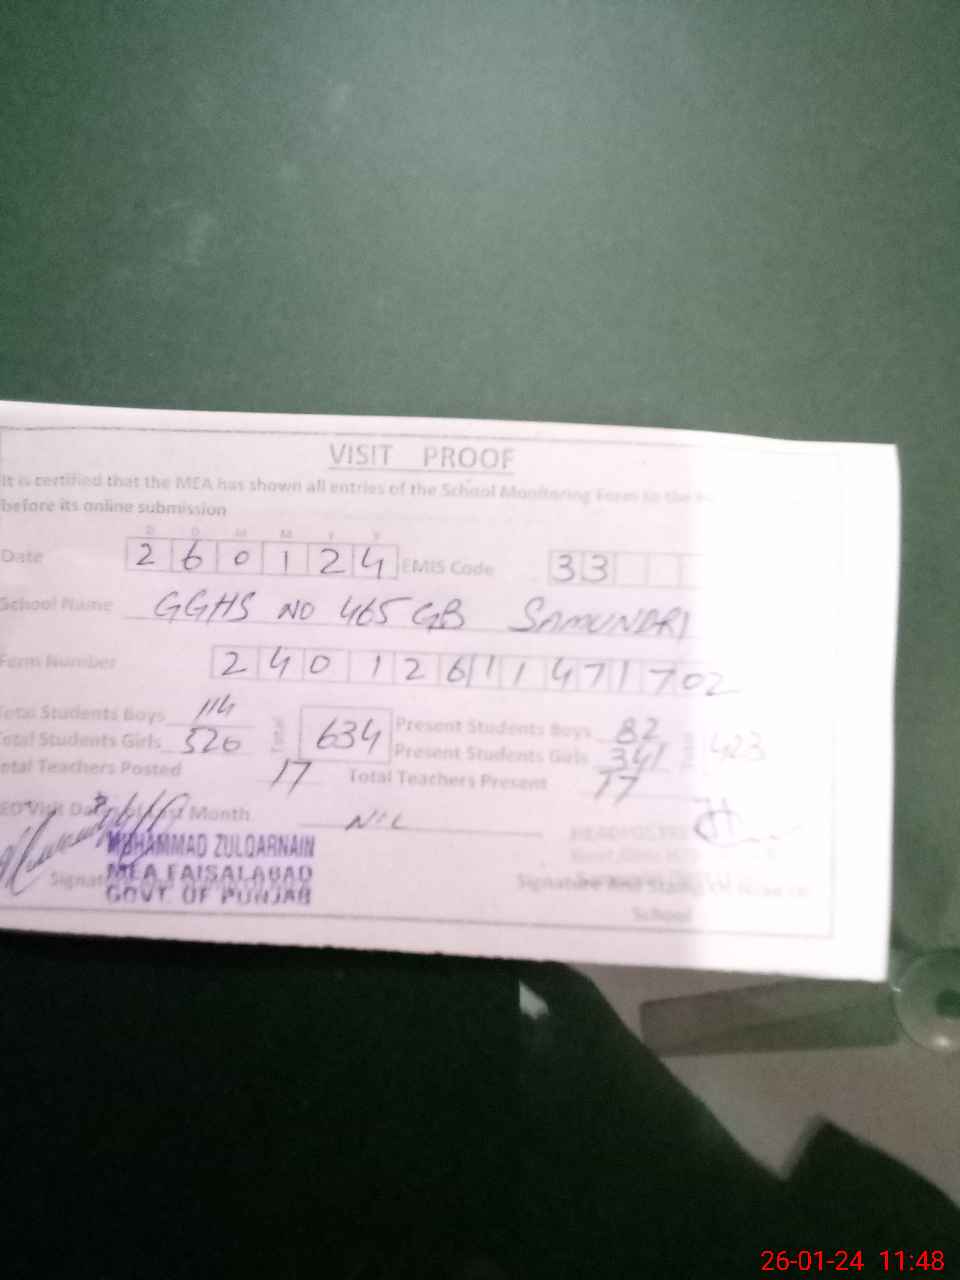 VISIT PROOF
It is certified that the MEA has shown all entries of the School Monitoring Form to the
before its online submission
D D M M Y Y
Date 260124 EMIS Code 33
School Name GGHS NO 465 GB SAMUNDRI
Form Number 24012611471702
Total Students Boys 114 Total 634 Present Students Boys 82 Total 423
Total Students Girls 520 Present Students Girls 341
Total Teachers Posted 17 Total Teachers Present 17
Visit Last Month NIL
MUHAMMAD ZULQARNAIN
MEA FAISALABAD
GOVT. OF PUNJAB
Signature And Stamp
School
26-01-24 11:48